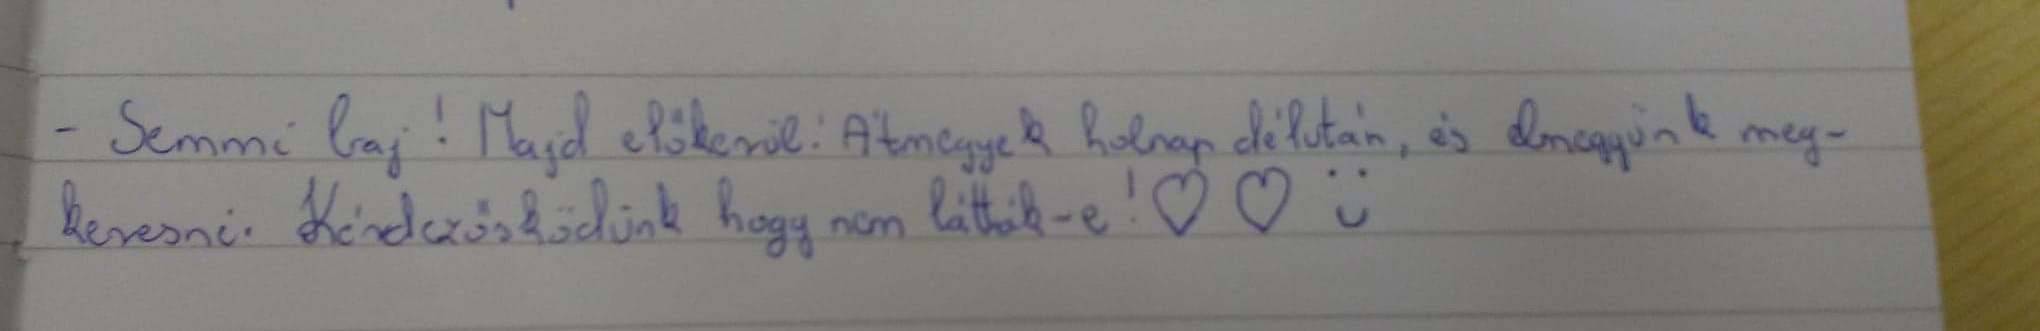 - Semmi baj! Majd előkerül! Átmegyek holnap délután, és elmegyünk meg-
keresni. Kérdezősködünk hogy nem látták-e! ♡ ♡ Ü